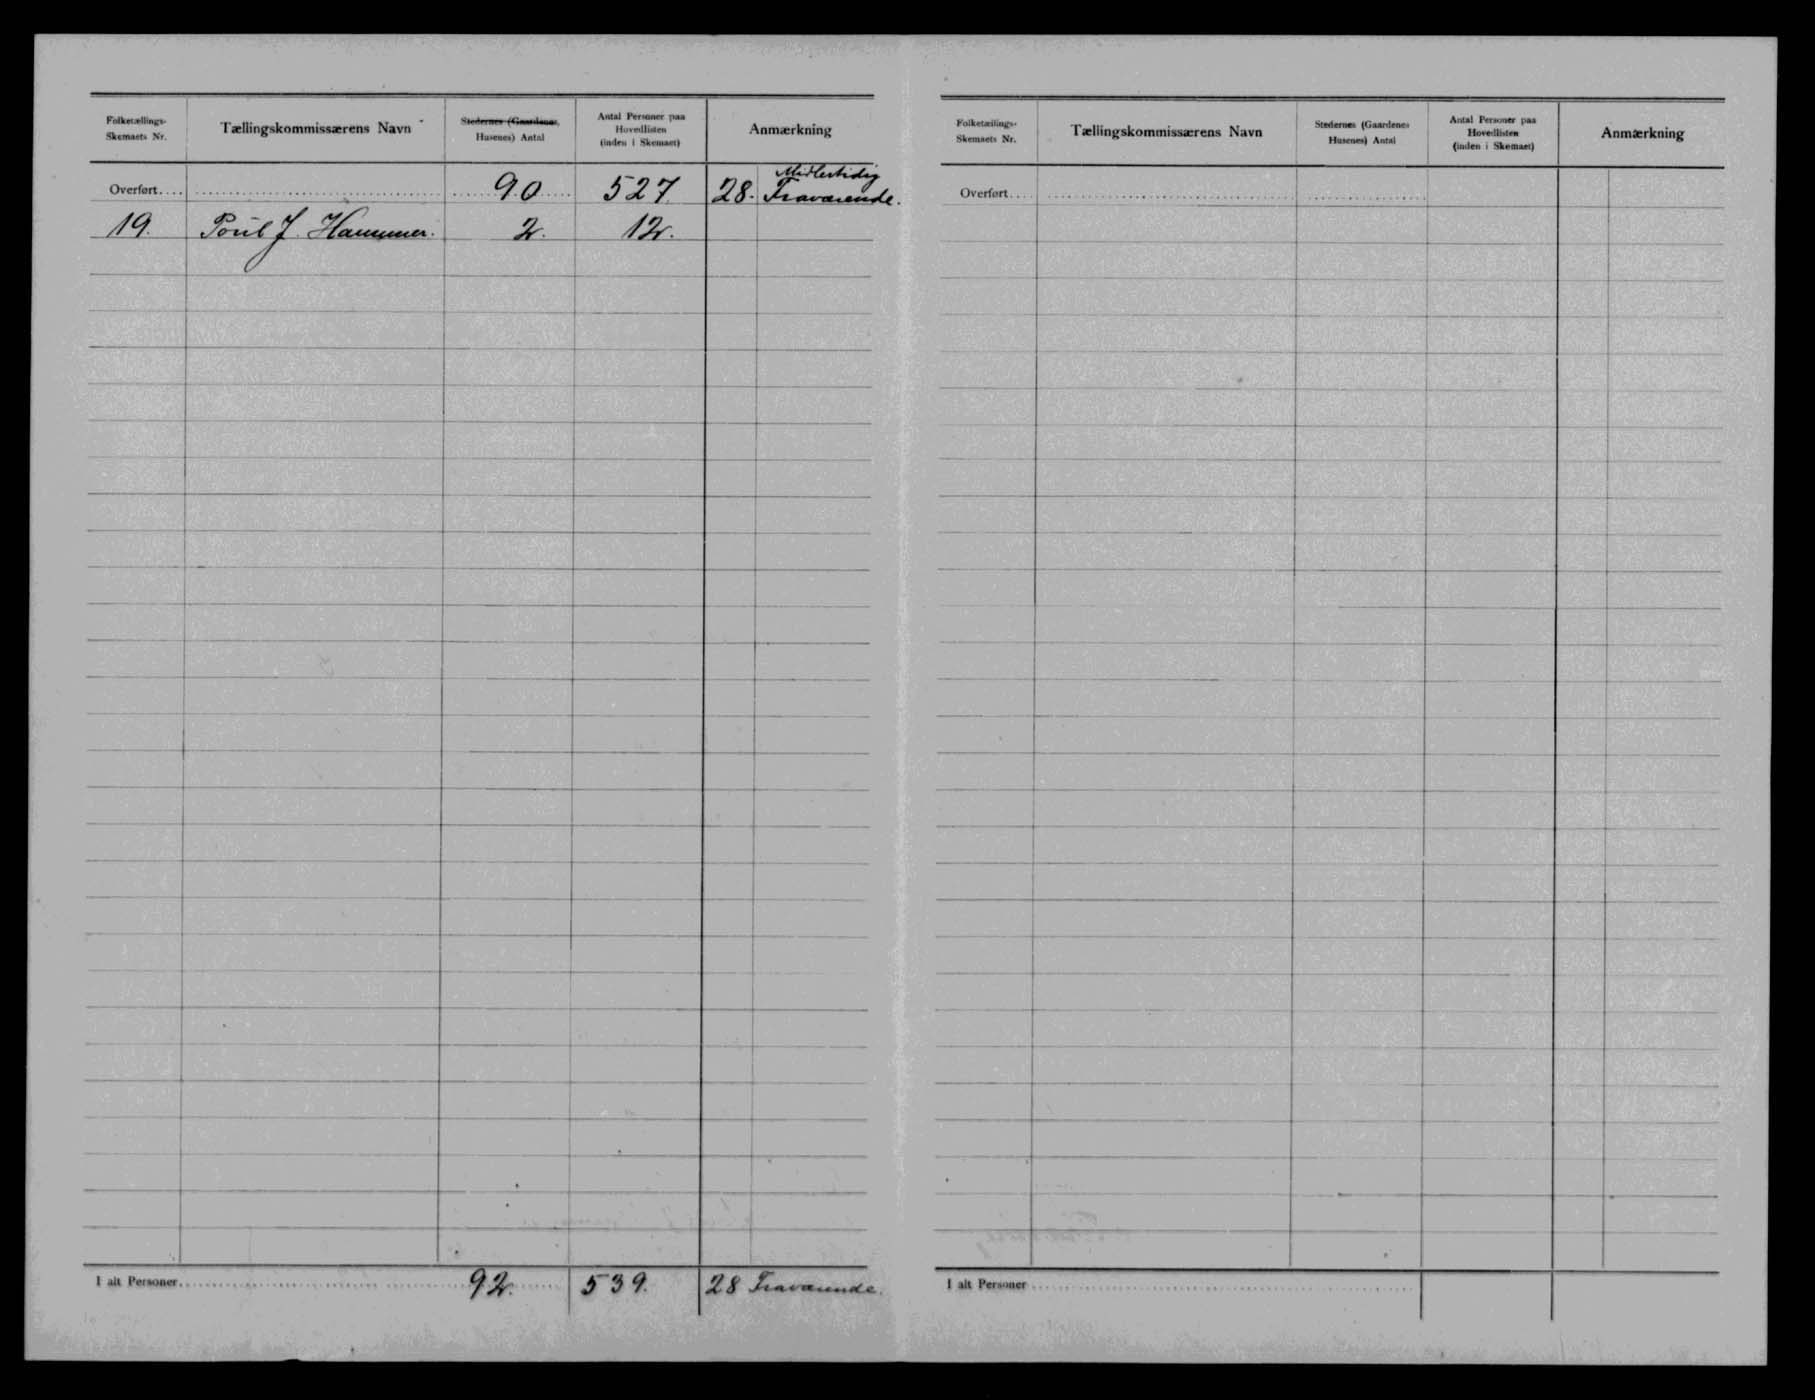 Folketællings-
Skemaets Nr.
Tællingskommissærens Navn
Stedernes (Gaardenes,
Husenes) Antal
Antal Personer paa
Hovedlisten
(inden i Skemaet)
Anmærkning
Overført.... 90 527. 28. Midlertidig
Fraværende.
19. Poul J. Hammer. 2. 12.
I alt Personer 92. 539. 28 Fraværende.
Folketællings-
Skemaets Nr.
Tællingskommissærens Navn
Stedernes (Gaardenes
Husenes) Antal
Antal Personer paa
Hovedlisten
(inden i Skemaet)
Anmærkning
Overført....
I alt Personer